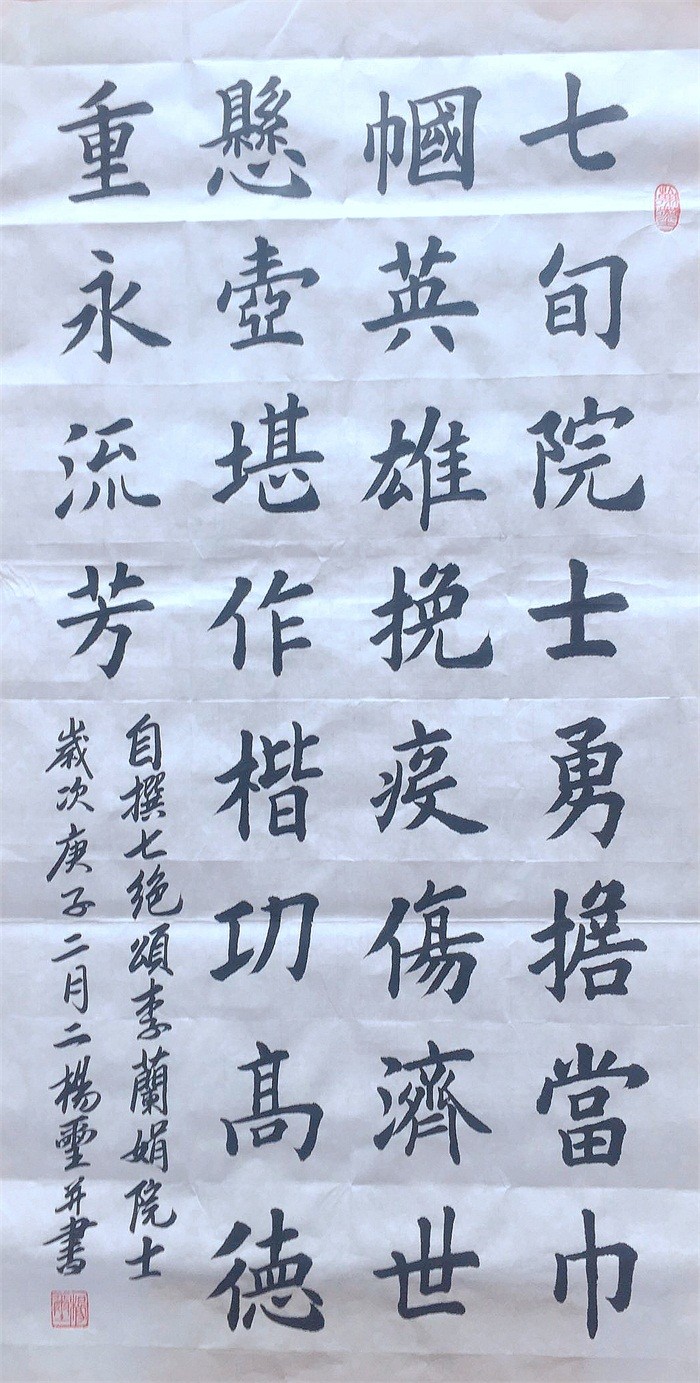 七旬院士勇擔當巾
幗英雄挽疫傷濟世
懸壺堪作楷功高德
重永流芳
自撰七絶頌李蘭娟院士
歲次庚子二月二楊璽并書